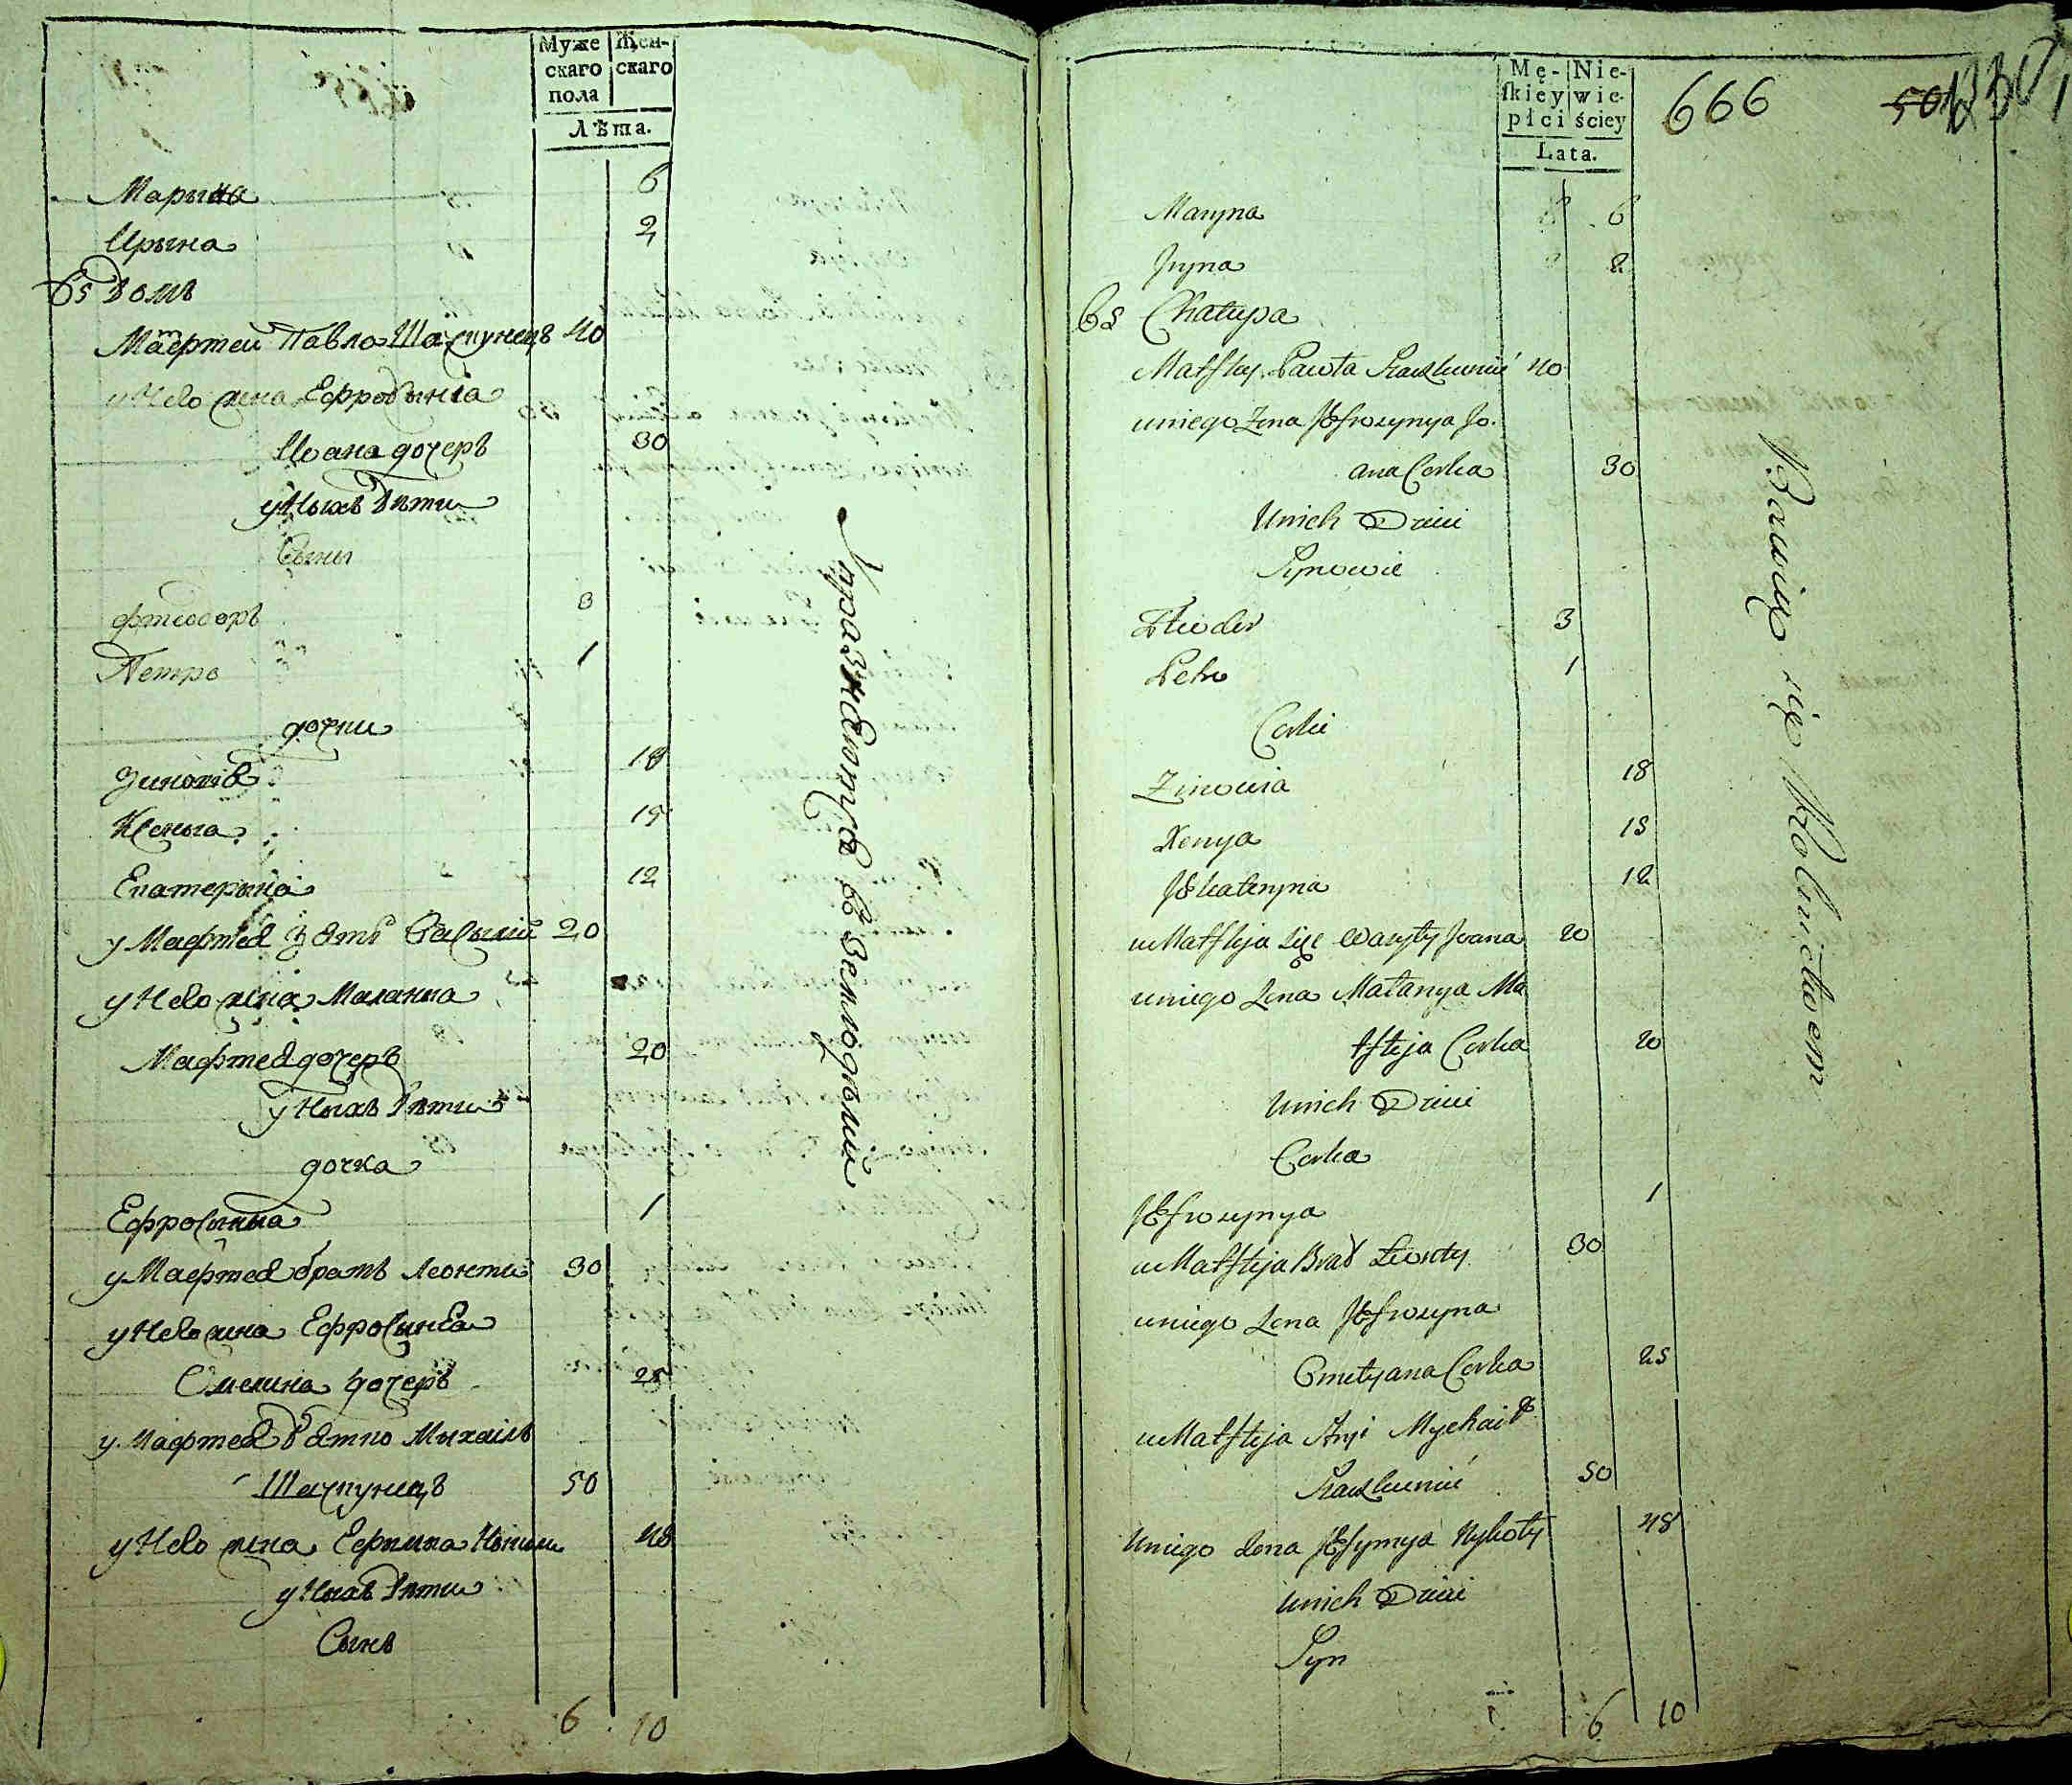 Муже
скаго
пола
Жен-
скаго
Лѣта.
Марына 6
Ирына 2
65 Домъ
Мафтей Павло 40
у Него жена Ефросынія
Ивана дочеръ 30
у Ныхъ Дѣти
Сыны
Фтеодоръ 3
Петро 1
дочки
Зиновія 18
Ксеныа 15
Екатерына 12
у Мафтея зять Василій 20
у Него жена Маланиа
Мафтея дочеръ 20
у Ныхъ Дѣти
дочка
Ефросыныа 1
у Мафтея братъ Леонтій 30
у Него жена Ефросиніа
Омеляна дочеръ 25
у Мафтея дядко Михаилъ
50
у Него жена 48
у Ныхъ Дѣти
Сынъ
6 10
Упражняются въ Земледѣліи
Mę-
skiey
płci
Nie-
wie-
ściey
Lata.
666
Maryna 6
Iryna 2
65 Chałupa
Matftey Pawła 40
u niego Żona Jefrozynya Jo.
ana Corka 30
U nich Dzieci
Synowie
Fteodor 3
Petro 1
Corki
Zinowia 18
Xenya 15
Jekateryna 12
u Matfteja Zięć Wasyly Joana 20
u niego Żona Małanya Ma
tfteja Corka 20
U nich Dzieci
Corka
Jefrozynya 1
u Matfteja Brat Leonty 30
u niego Żona Jefrozyna
Omelyana Corka 25
u Matfteja Stryi Mychaiło
50
U niego Żona Jefymya Nykoły 48
U nich Dzieci
Syn
6 10
Bawią się Rolnictwem